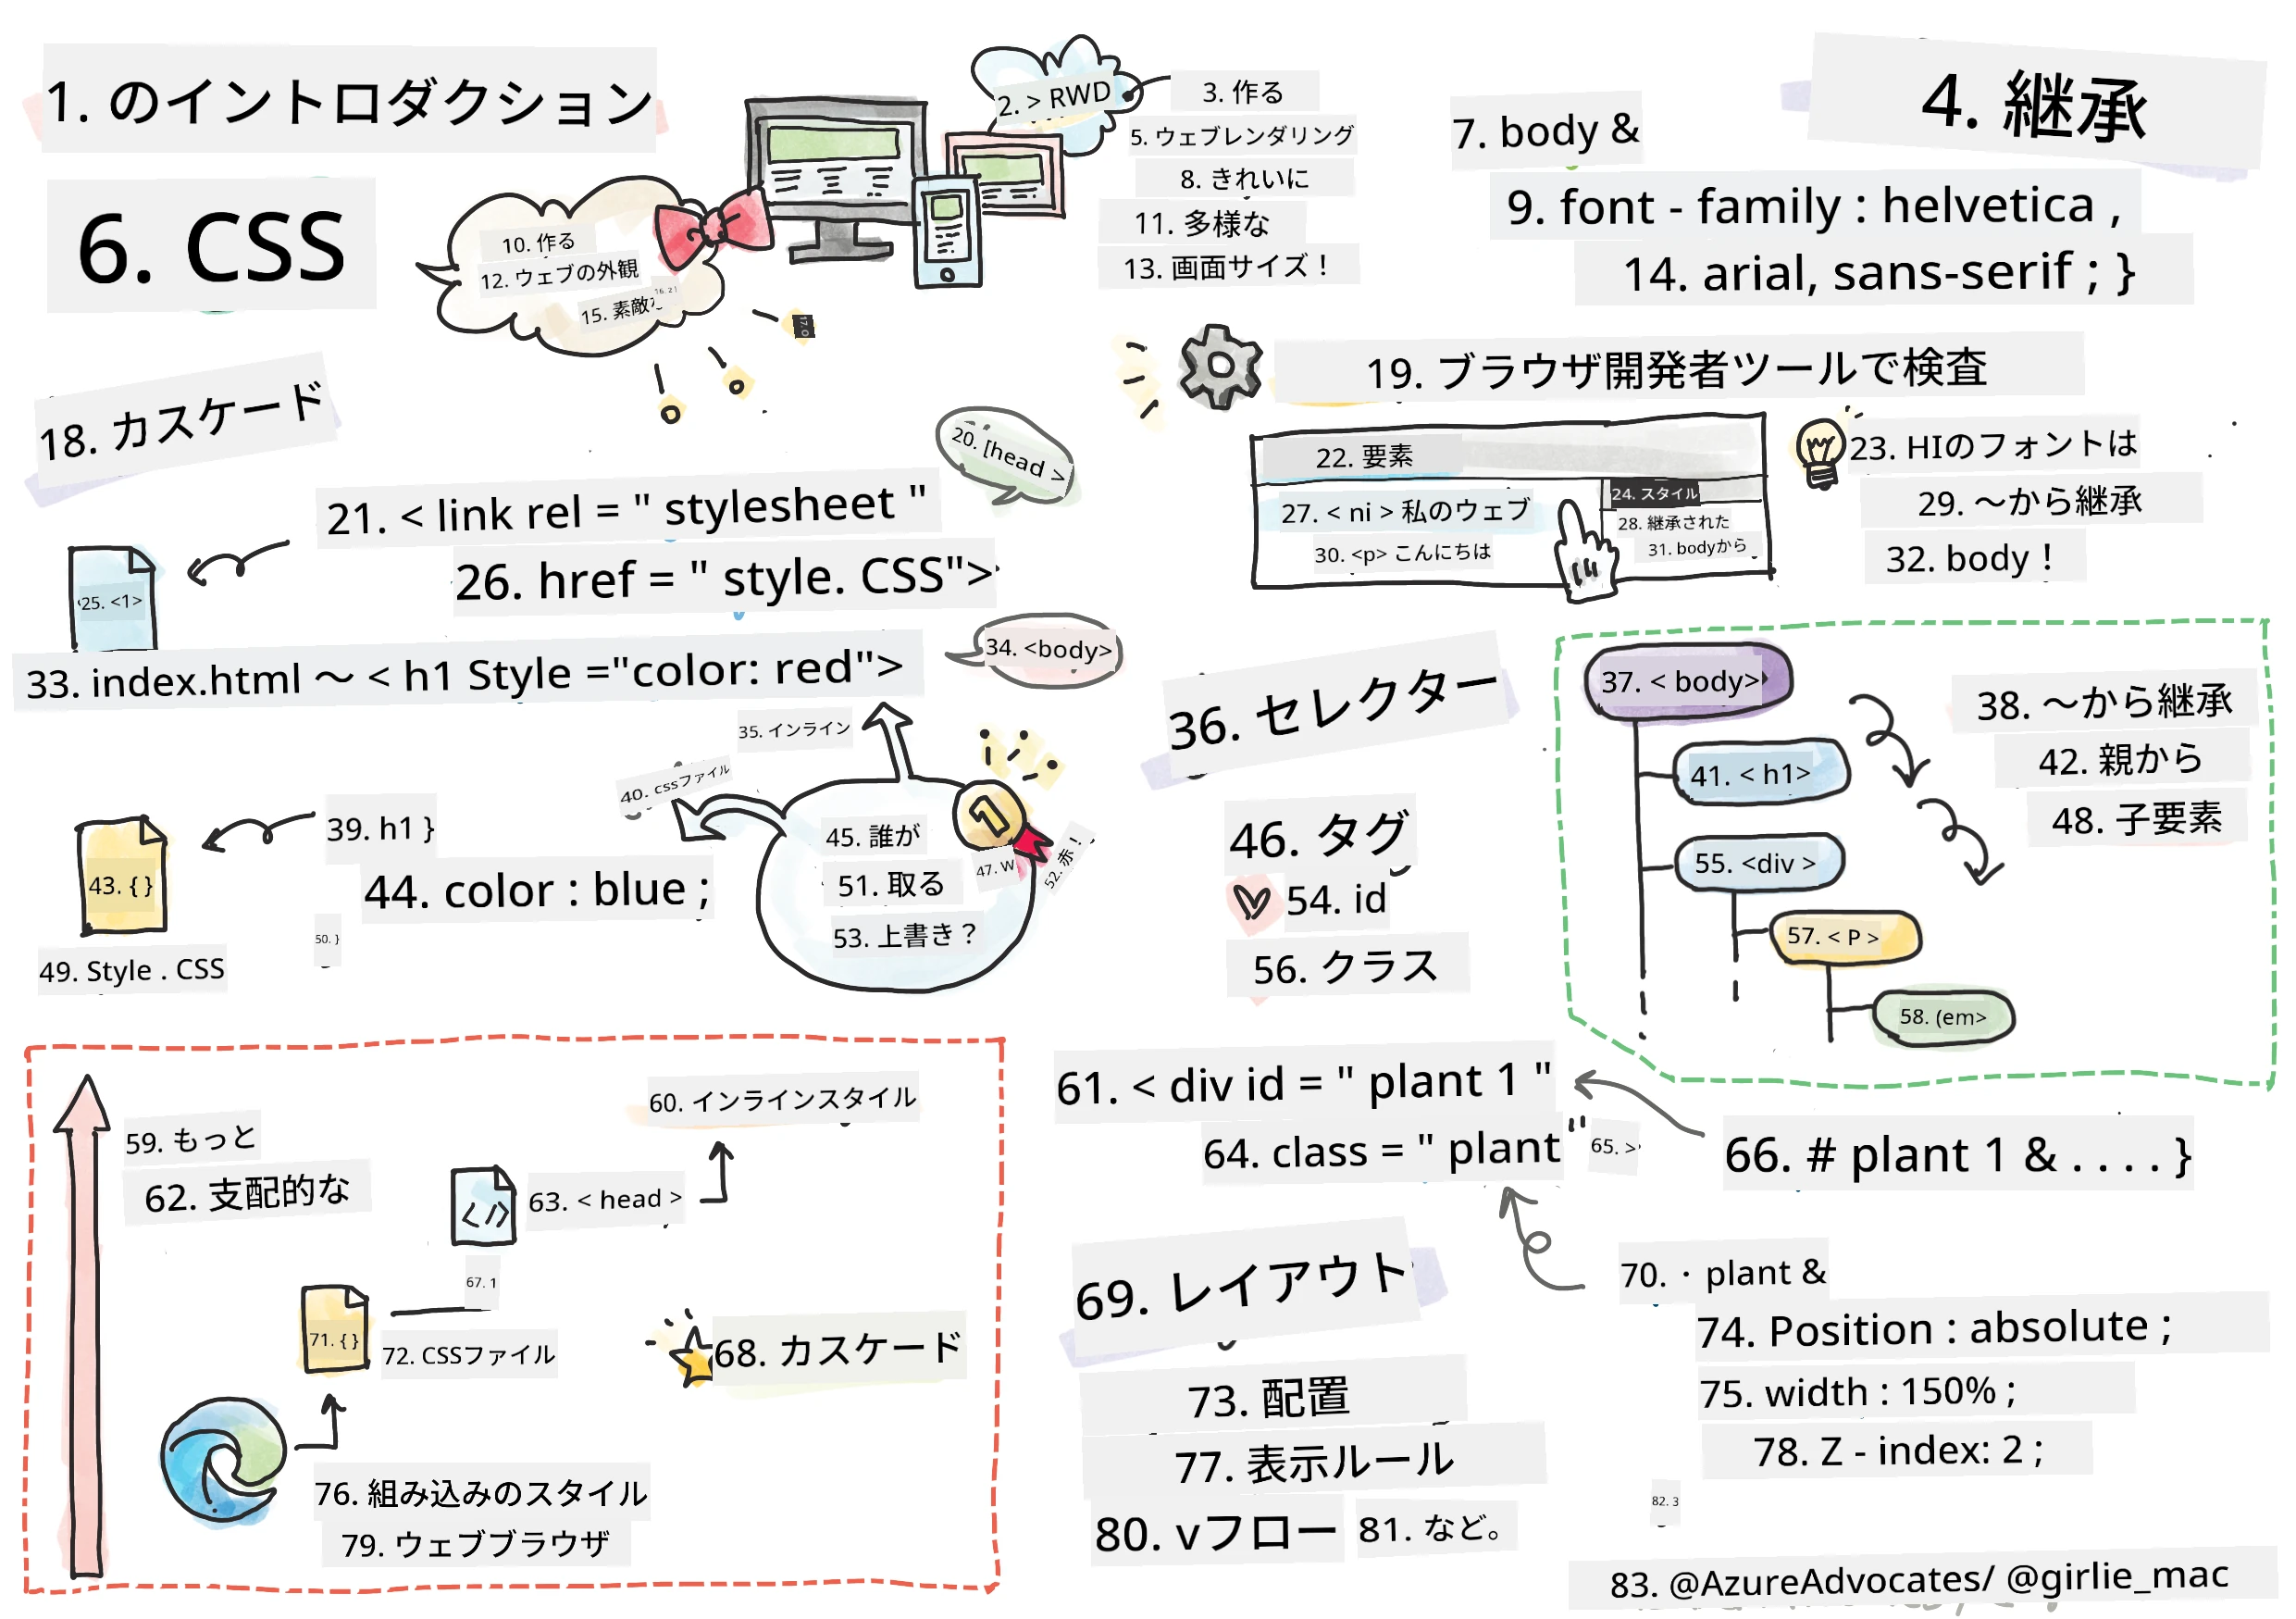 1. のイントロダクション
2. > RWD
3. 作る
4. 継承
5. ウェブレンダリング
6. CSS
7. body &
8. きれいに
9. font - family : helvetica ,
10. 作る
11. 多様な
12. ウェブの外観
13. 画面サイズ！
14. arial, sans-serif ; }
15. 素敵な
16. 21
17. O
18. カスケード
19. ブラウザ開発者ツールで検査
20. [head >
21. < link rel = " stylesheet "
22. 要素
23. HIのフォントは
24. スタイル
25. <1>
26. href = " style. CSS">
27. < ni > 私のウェブ
28. 継承された
29. 〜から継承
30. <p> こんにちは
31. bodyから
32. body！
33. index.html 〜 < h1 Style ="color: red">
34. <body>
35. インライン
36. セレクター
37. < body>
38. 〜から継承
39. h1 }
40. cssファイル
41. < h1>
42. 親から
43. { }
44. color : blue ;
45. 誰が
46. タグ
47. W
48. 子要素
49. Style . CSS
50. }
51. 取る
52. 赤！
53. 上書き？
54. id
55. <div >
56. クラス
57. < P >
58. (em>
59. もっと
60. インラインスタイル
61. < div id = " plant 1 "
62. 支配的な
63. < head >
64. class = " plant "
65. >
66. # plant 1 & . . . . }
67. 1
68. カスケード
69. レイアウト
70. · plant &
71. { }
72. CSSファイル
73. 配置
74. Position : absolute ;
75. width : 150% ;
76. 組み込みのスタイル
77. 表示ルール
78. Z - index: 2 ;
79. ウェブブラウザ
80. vフロー
81. など。
82. 3
83. @AzureAdvocates/ @girlie_mac